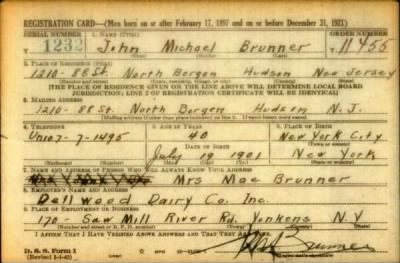 REGISTRATION CARD—(Men born on or after February 17, 1897 and on or before December 31, 1921)
SERIAL NUMBER 1. NAME (Print) ORDER NUMBER
T 1232 John Michael Brunner 11455
2. PLACE OF RESIDENCE (Print)
1210-88 St. North Bergen Hudson New Jersey
(Number and street) (Town, township, village, or city) (County) (State)
[THE PLACE OF RESIDENCE GIVEN ON THE LINE ABOVE WILL DETERMINE LOCAL BOARD
JURISDICTION; LINE 2 OF REGISTRATION CERTIFICATE WILL BE IDENTICAL]
3. MAILING ADDRESS
1210-88 St. North Bergen Hudson N.J.
[Mailing address if other than place indicated on line 2. If same insert word same]
4. TELEPHONE 5. AGE IN YEARS 6. PLACE OF BIRTH
Un107-7-1495 40 New York City
DATE OF BIRTH (Town or county)
July 19 1901 New York
(Exchange) (Number) (Mo.) (Day) (Yr.) (State or country)
7. NAME AND ADDRESS OF PERSON WHO WILL ALWAYS KNOW YOUR ADDRESS
Mrs Mae Brunner
8. EMPLOYER'S NAME AND ADDRESS
Dellwood Dairy Co. Inc.
9. PLACE OF EMPLOYMENT OR BUSINESS
170- Saw Mill River Rd. Yonkens N Y
(Number and street or R. F. D. number) (Town) (County) (State)
I AFFIRM THAT I HAVE VERIFIED ABOVE ANSWERS AND THAT THEY ARE TRUE.
D. S. S. Form 1
(Revised 1-1-42) (over) Brunner